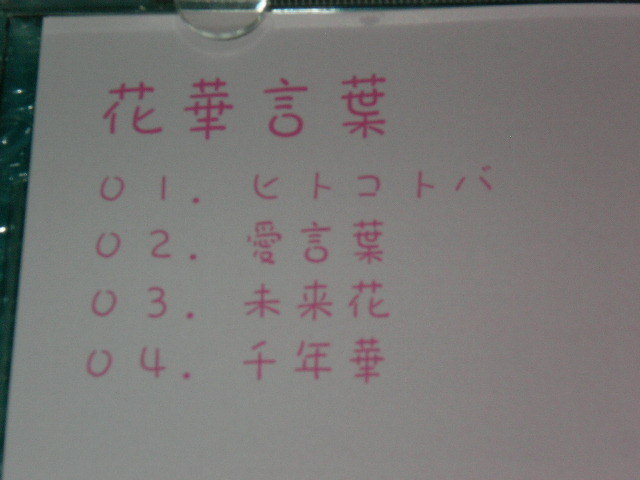 花華言葉
０１．ヒトコトバ
０２．言葉
０３．未来花
０４．千年華